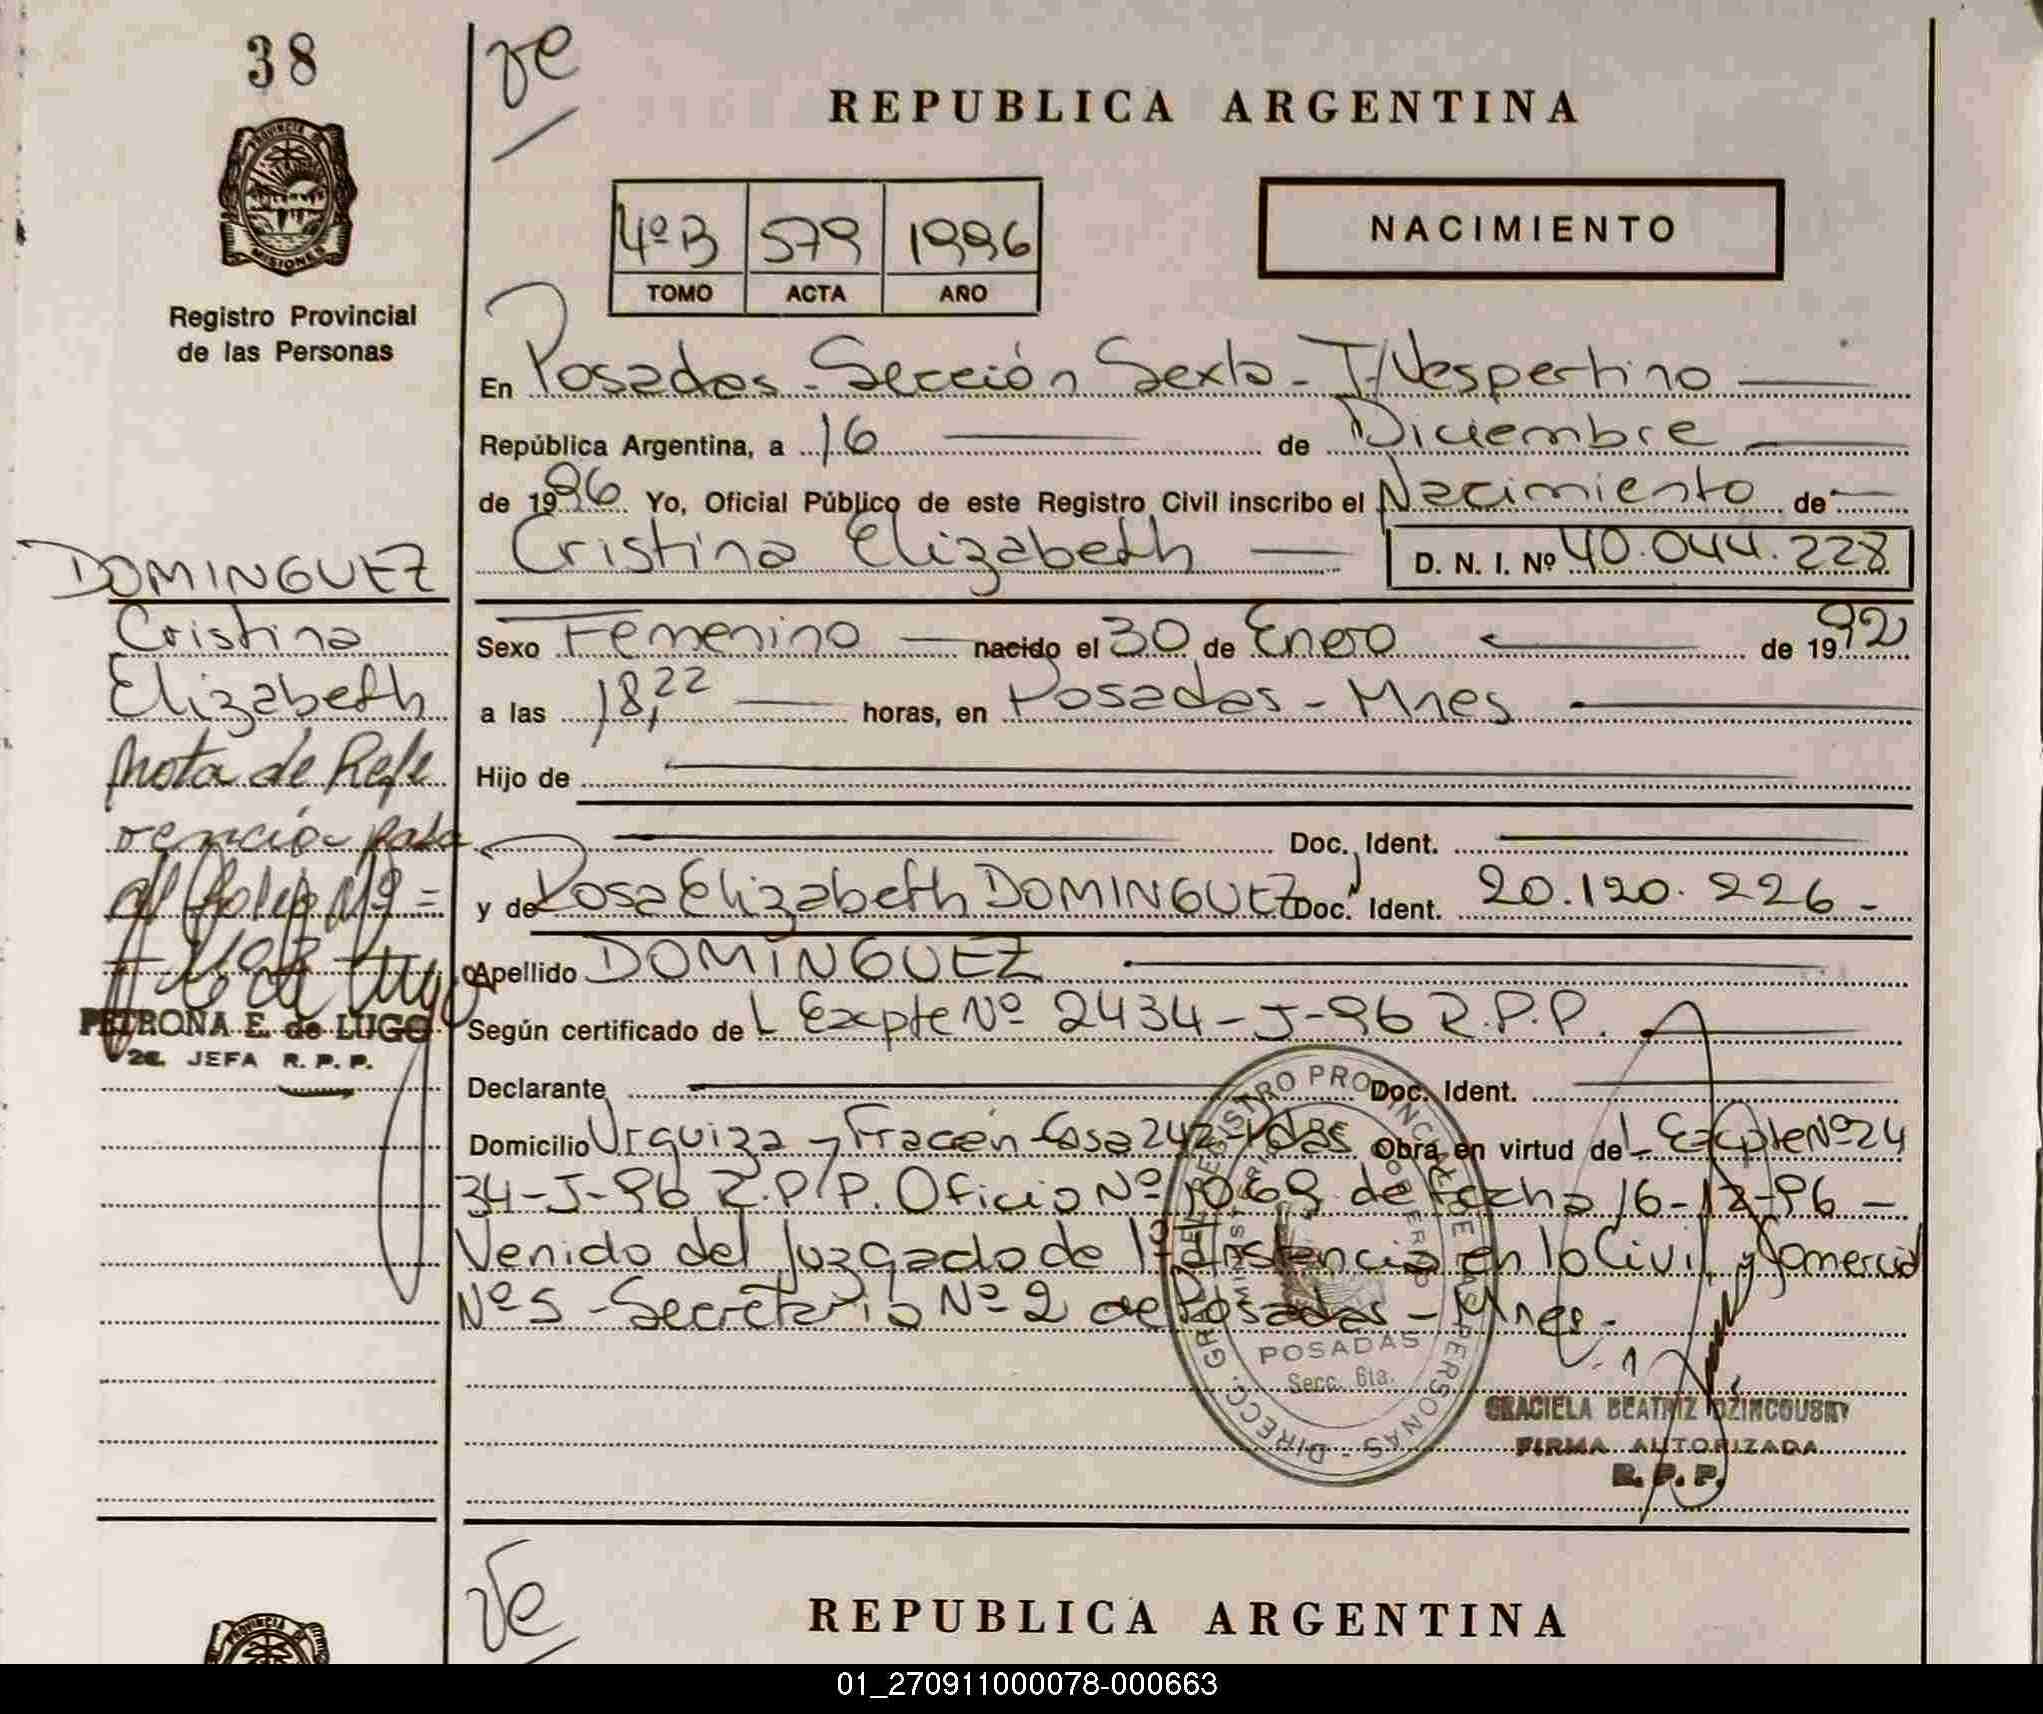 38
ve
REPUBLICA ARGENTINA
PROVINCIA DE
MISIONES
Registro Provincial
de las Personas
4º B 579 1996
TOMO ACTA AÑO
NACIMIENTO
En Posadas - Sección Sexta - T/Vespertino
República Argentina, a 16 de Diciembre
de 1996 Yo, Oficial Público de este Registro Civil inscribo el Nacimiento de
Cristina Elizabeth D. N. I. Nº 40.044.228
Sexo Femenino nacido el 30 de Enero de 1992
a las 18,22 horas, en Posadas - Mnes
Hijo de
Doc. Ident.
y de Rosa Elizabeth DOMINGUEZ Doc. Ident. 20.120.226 -
Apellido DOMINGUEZ
Según certificado de L Expte Nº 2434-J-96 R.P.P.
Declarante Doc. Ident.
Domicilio Urquiza y Fracén Casa 242 - Pdas Obra en virtud de L Expte Nº 24
34-J-96 R.P.P. Oficio Nº 1069 de fecha 16-12-96 -
Venido del Juzgado de 1º Instancia en lo Civil y Comercial
Nº 5 - Secretaria Nº 2 de Posadas - Mnes -
DOMINGUEZ
Cristina
Elizabeth
Nota de Refe
rencia pasa
al Folio Nº =
PETRONA E. de LUGO
2a. JEFA R. P. P.
DIRECC. GRAL. DEL REGISTRO PROVINCIAL DE LAS PERSONAS
POSADAS
Secc. 6ta.
GRACIELA BEATRIZ DZINCOUSKY
FIRMA AUTORIZADA
R. P. P.
ve
REPUBLICA ARGENTINA
PROVINCIA
01_270911000078-000663